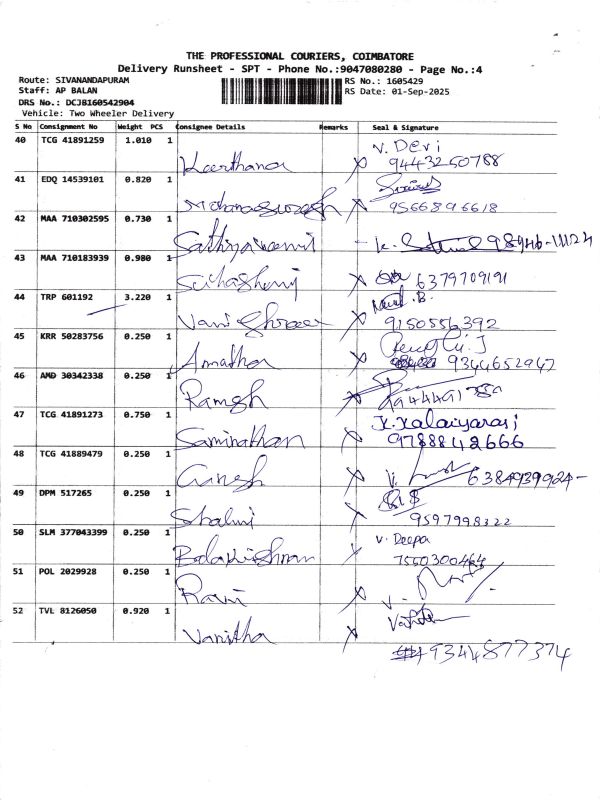 THE PROFESSIONAL COURIERS, COIMBATORE
Delivery Runsheet - SPT - Phone No.:9047080280 - Page No.:4
Route: SIVANANDAPURAM RS No.: 1605429
Staff: AP BALAN RS Date: 01-Sep-2025
DRS No.: DCJB160542904
Vehicle: Two Wheeler Delivery
S No Consignment No Weight PCS Consignee Details Remarks Seal & Signature
40 TCG 41891259 1.010 1 Keerthana V. Devi
9443250788
41 EDQ 14539101 0.820 1
9566896618
42 MAA 710302595 0.730 1 K.
43 MAA 710183939 0.900 1 6379709191
44 TRP 601192 3.220 1 B.
9150556392
45 KRR 50283756 0.250 1 Amutha
9344652947
46 AMD 30342338 0.250 1 Ramesh
47 TCG 41891273 0.750 1 Saminathan K. Kalaiyarasi
9788842666
48 TCG 41889479 0.250 1 Ganesh V. 6384939924-
49 DPM 517265 0.250 1 Shalni
9597998322
50 SLM 377043399 0.250 1 Balakrishnan V. Deepa
7550300464
51 POL 2029928 0.250 1 Ravi
52 TVL 8126050 0.920 1 Vanitha
9344877374